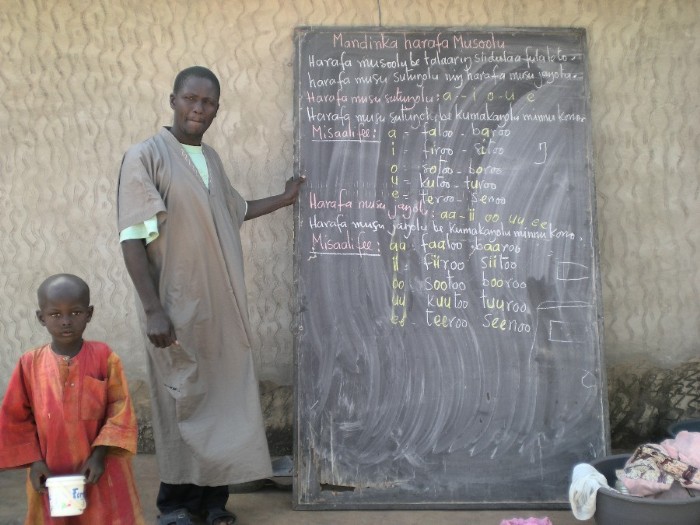 Mandinka harafa Musoolu
Harafa musoolu be talaarin siidulaa fula le to
harafa musu sutuŋolu niŋ harafa musu jaŋolu.
Harafa musu sutuŋolu: a - i o - u e
Harafa musu sutuŋolu be kumakaŋolu minnu kono
Misaalifee: a = faloo - baroo
i = firoo - sitoo
o = sotoo - boroo
u = kutoo - turoo
e = teroo - senoo
Harafa musu jaŋolu: aa - ii oo uu ee
Harafa musu jaŋolu be kumakaŋolu minnu kono.
Misaalifee: aa = faaloo - baaroo
ii = fiiroo siitoo
oo sootoo booroo
uu kuutoo tuuroo
ee - teeroo seenoo